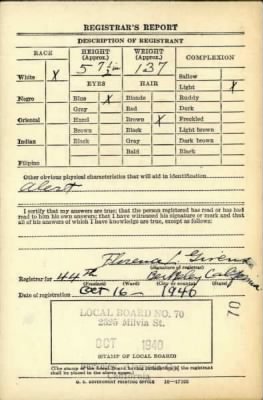 REGISTRAR'S REPORT
DESCRIPTION OF REGISTRANT
RACE HEIGHT (Approx.) WEIGHT (Approx.) COMPLEXION
5 7½ in 137
White X Sallow
EYES HAIR Light X
Negro Blue X Blonde Ruddy
Gray Red Dark
Oriental Hazel Brown X Freckled
Brown Black Light brown
Indian Black Gray Dark brown
Bald Black
Filipino
Other obvious physical characteristics that will aid in identification
Alert
I certify that my answers are true; that the person registered has read or has had
read to him his own answers; that I have witnessed his signature or mark and that
all of his answers of which I have knowledge are true, except as follows:
Florence L.
(Signature of registrar)
Registrar for 44th Berkeley California
(Precinct) (Ward) (City or county) (State)
Date of registration Oct 16 - 1940
LOCAL BOARD NO. 70
Milvia St.
OCT 1940
STAMP OF LOCAL BOARD
70
(The stamp of the Local Board having jurisdiction of the registrant
shall be placed in the above space)
U. S. GOVERNMENT PRINTING OFFICE